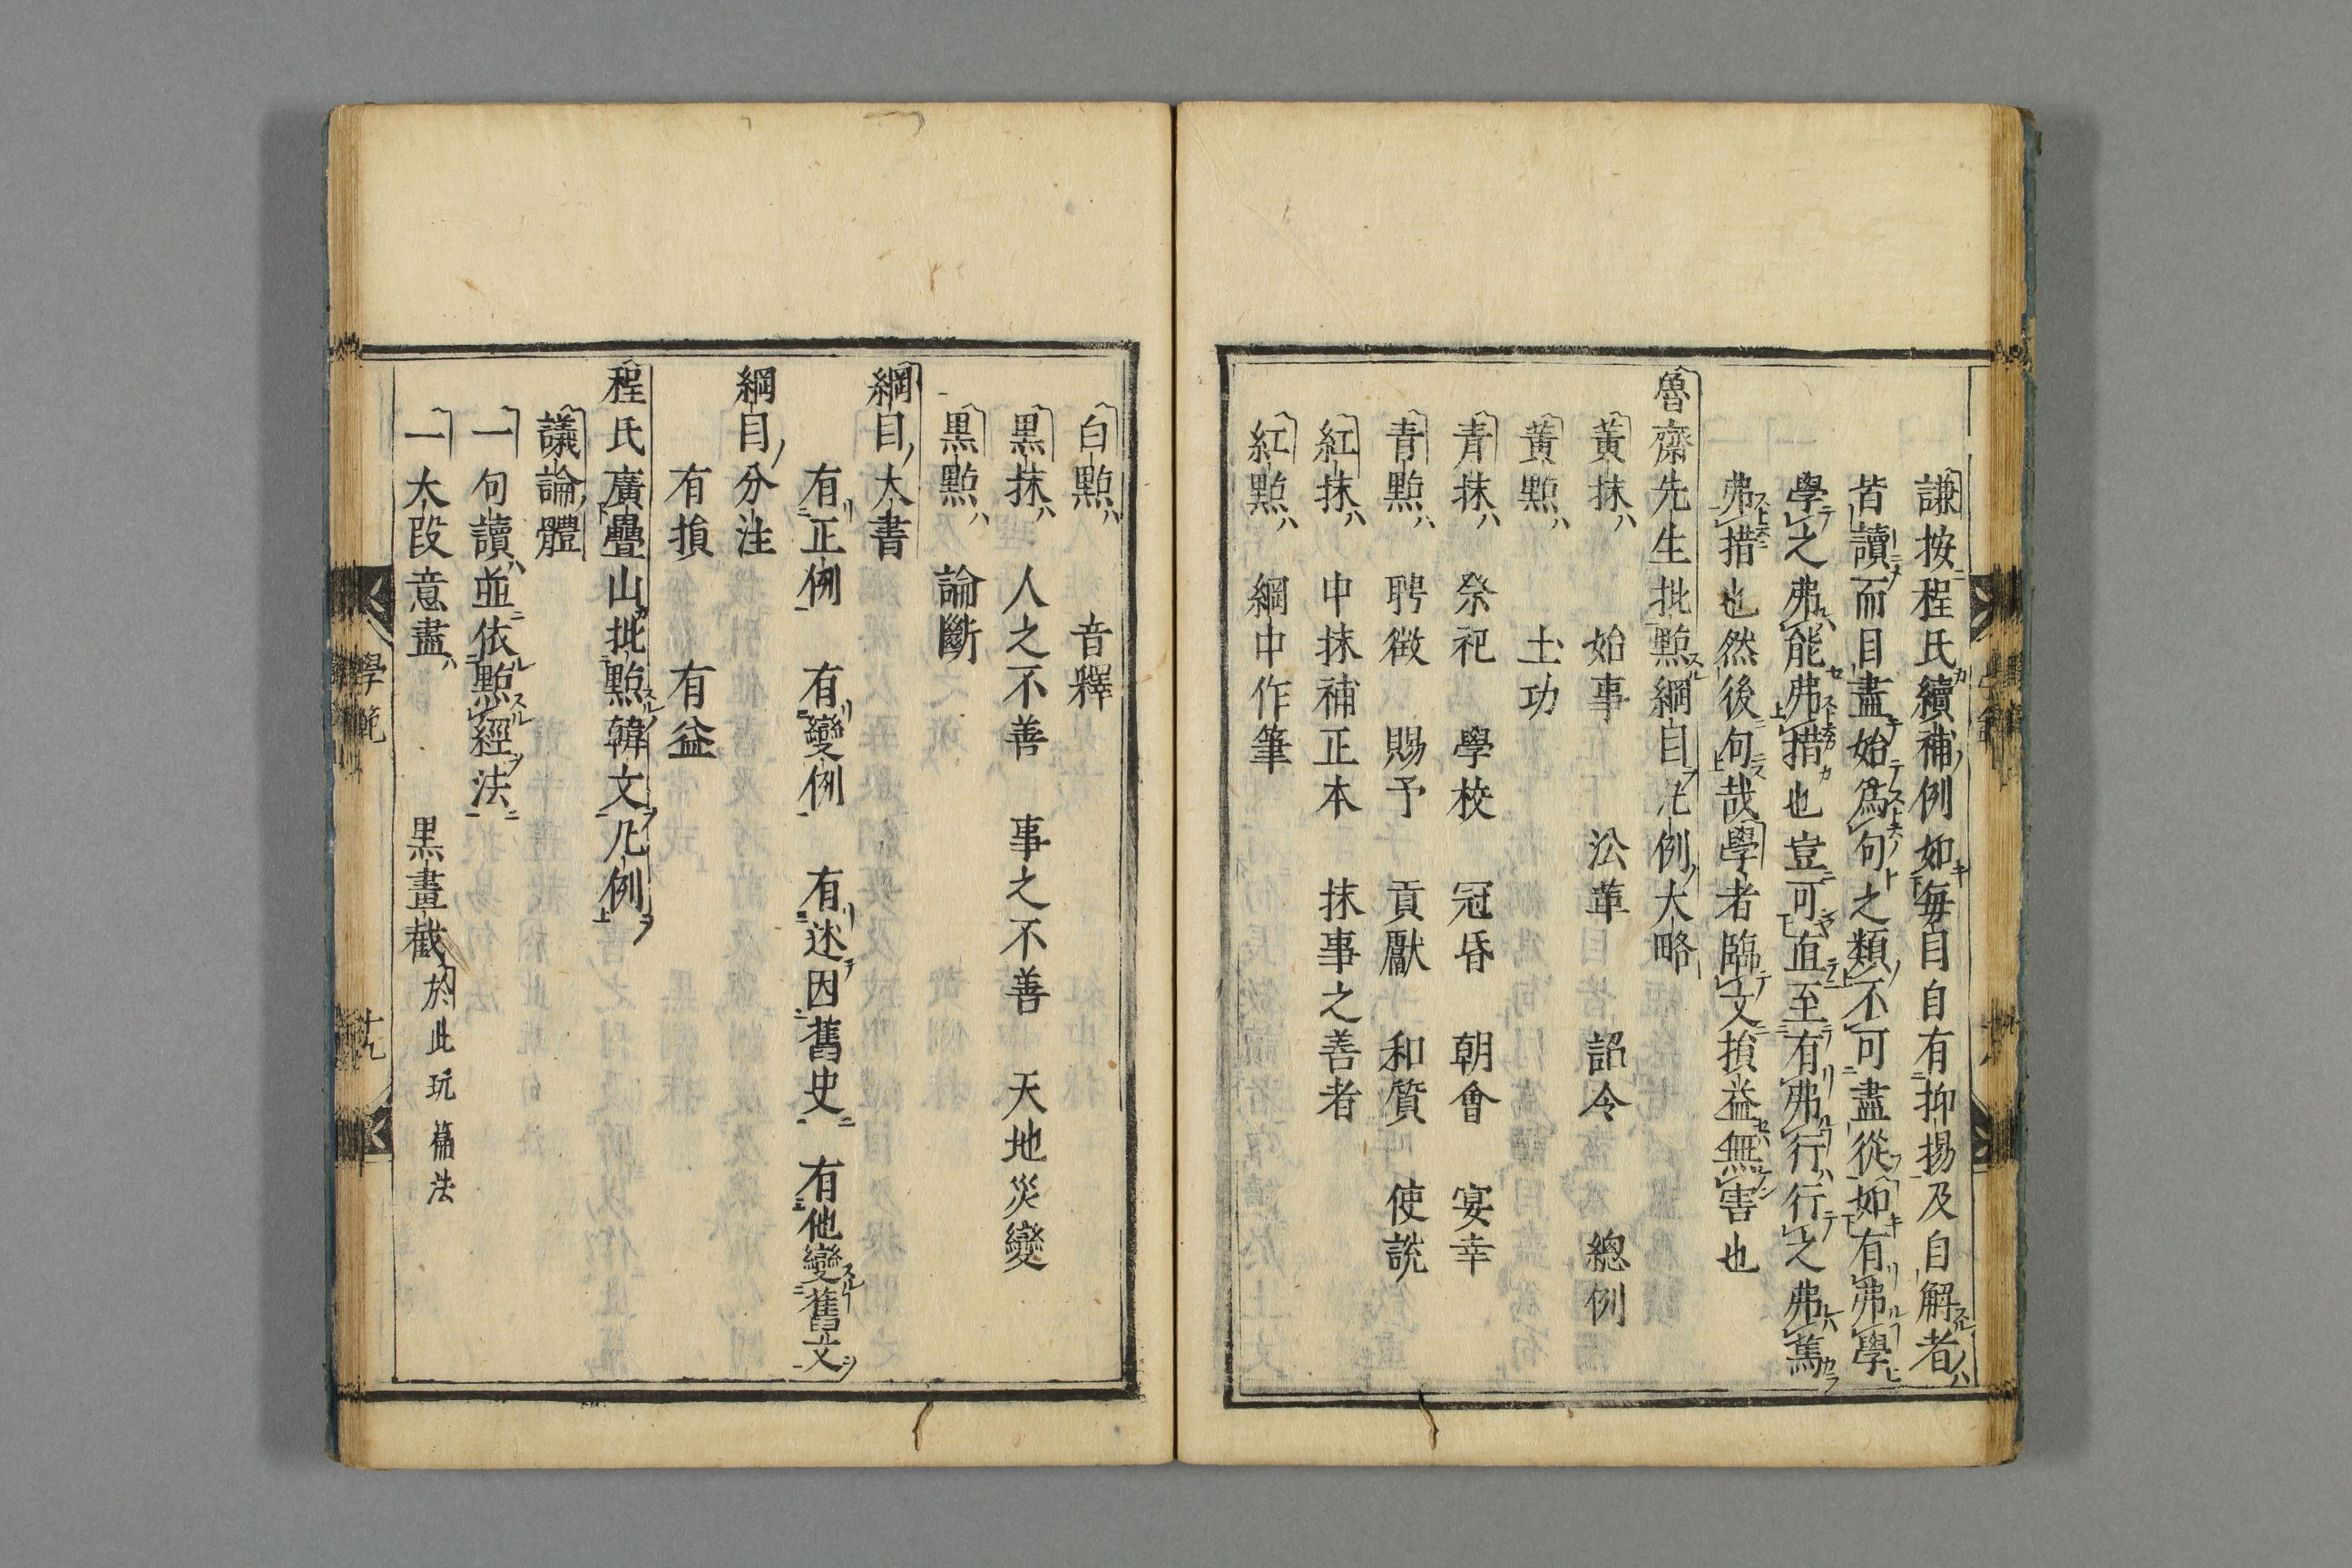 謙按程氏續補例如每目自有抑揚及自解者
皆讀而目盡始爲句之類不可盡從如有弗學
學之弗能弗措也豈可直至有弗行行之弗篤
弗措也然後句哉學者臨文損益無害也
魯齋先生批點綱目凡例大略
黃抹 始事 沿革 詔令 總例
黃點 土功
青抹 祭祀 學校 冠昏 朝會 宴幸
青點 聘徵 賜予 貢獻 和質 使說
紅抹 中抹補正本 抹事之善者
紅點 綱中作筆
白點 音釋
黑抹 人之不善 事之不善 天地災變
黑點 論斷
綱目大書
有正例 有變例 有述因舊史 有他變舊文
綱目分注
有損 有益
程氏廣疊山批點韓文凡例
議論體
一句讀並依點經法
一大段意盡 黑畫截於此玩篇法
學範
十九